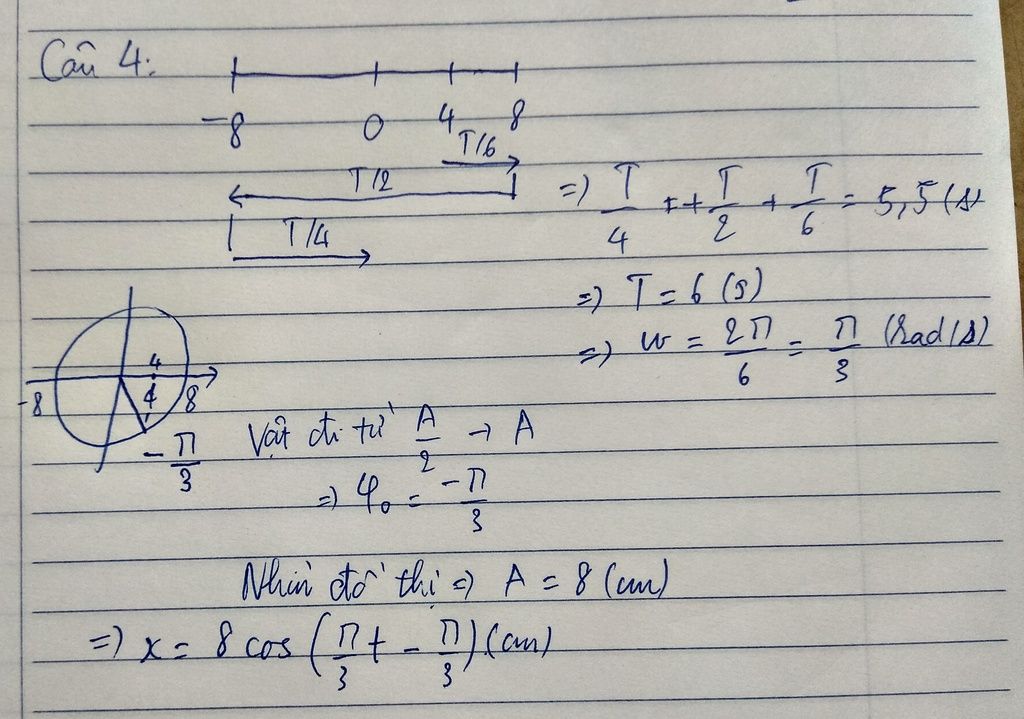 Câu 4:
-8 0 4 8
T/6
T/2
T/4
=) T/4 + T/2 + T/6 = 5,5 (s)
=) T = 6 (s)
=) w = 2π/6 = π/3 (rad/s)
-8 4 4 8
-π/3
Vật đi từ A/2 → A
=) φ₀ = -π/3
Nhìn đồ thị =) A = 8 (cm)
=) x = 8 cos (π/3 t - π/3) (cm)